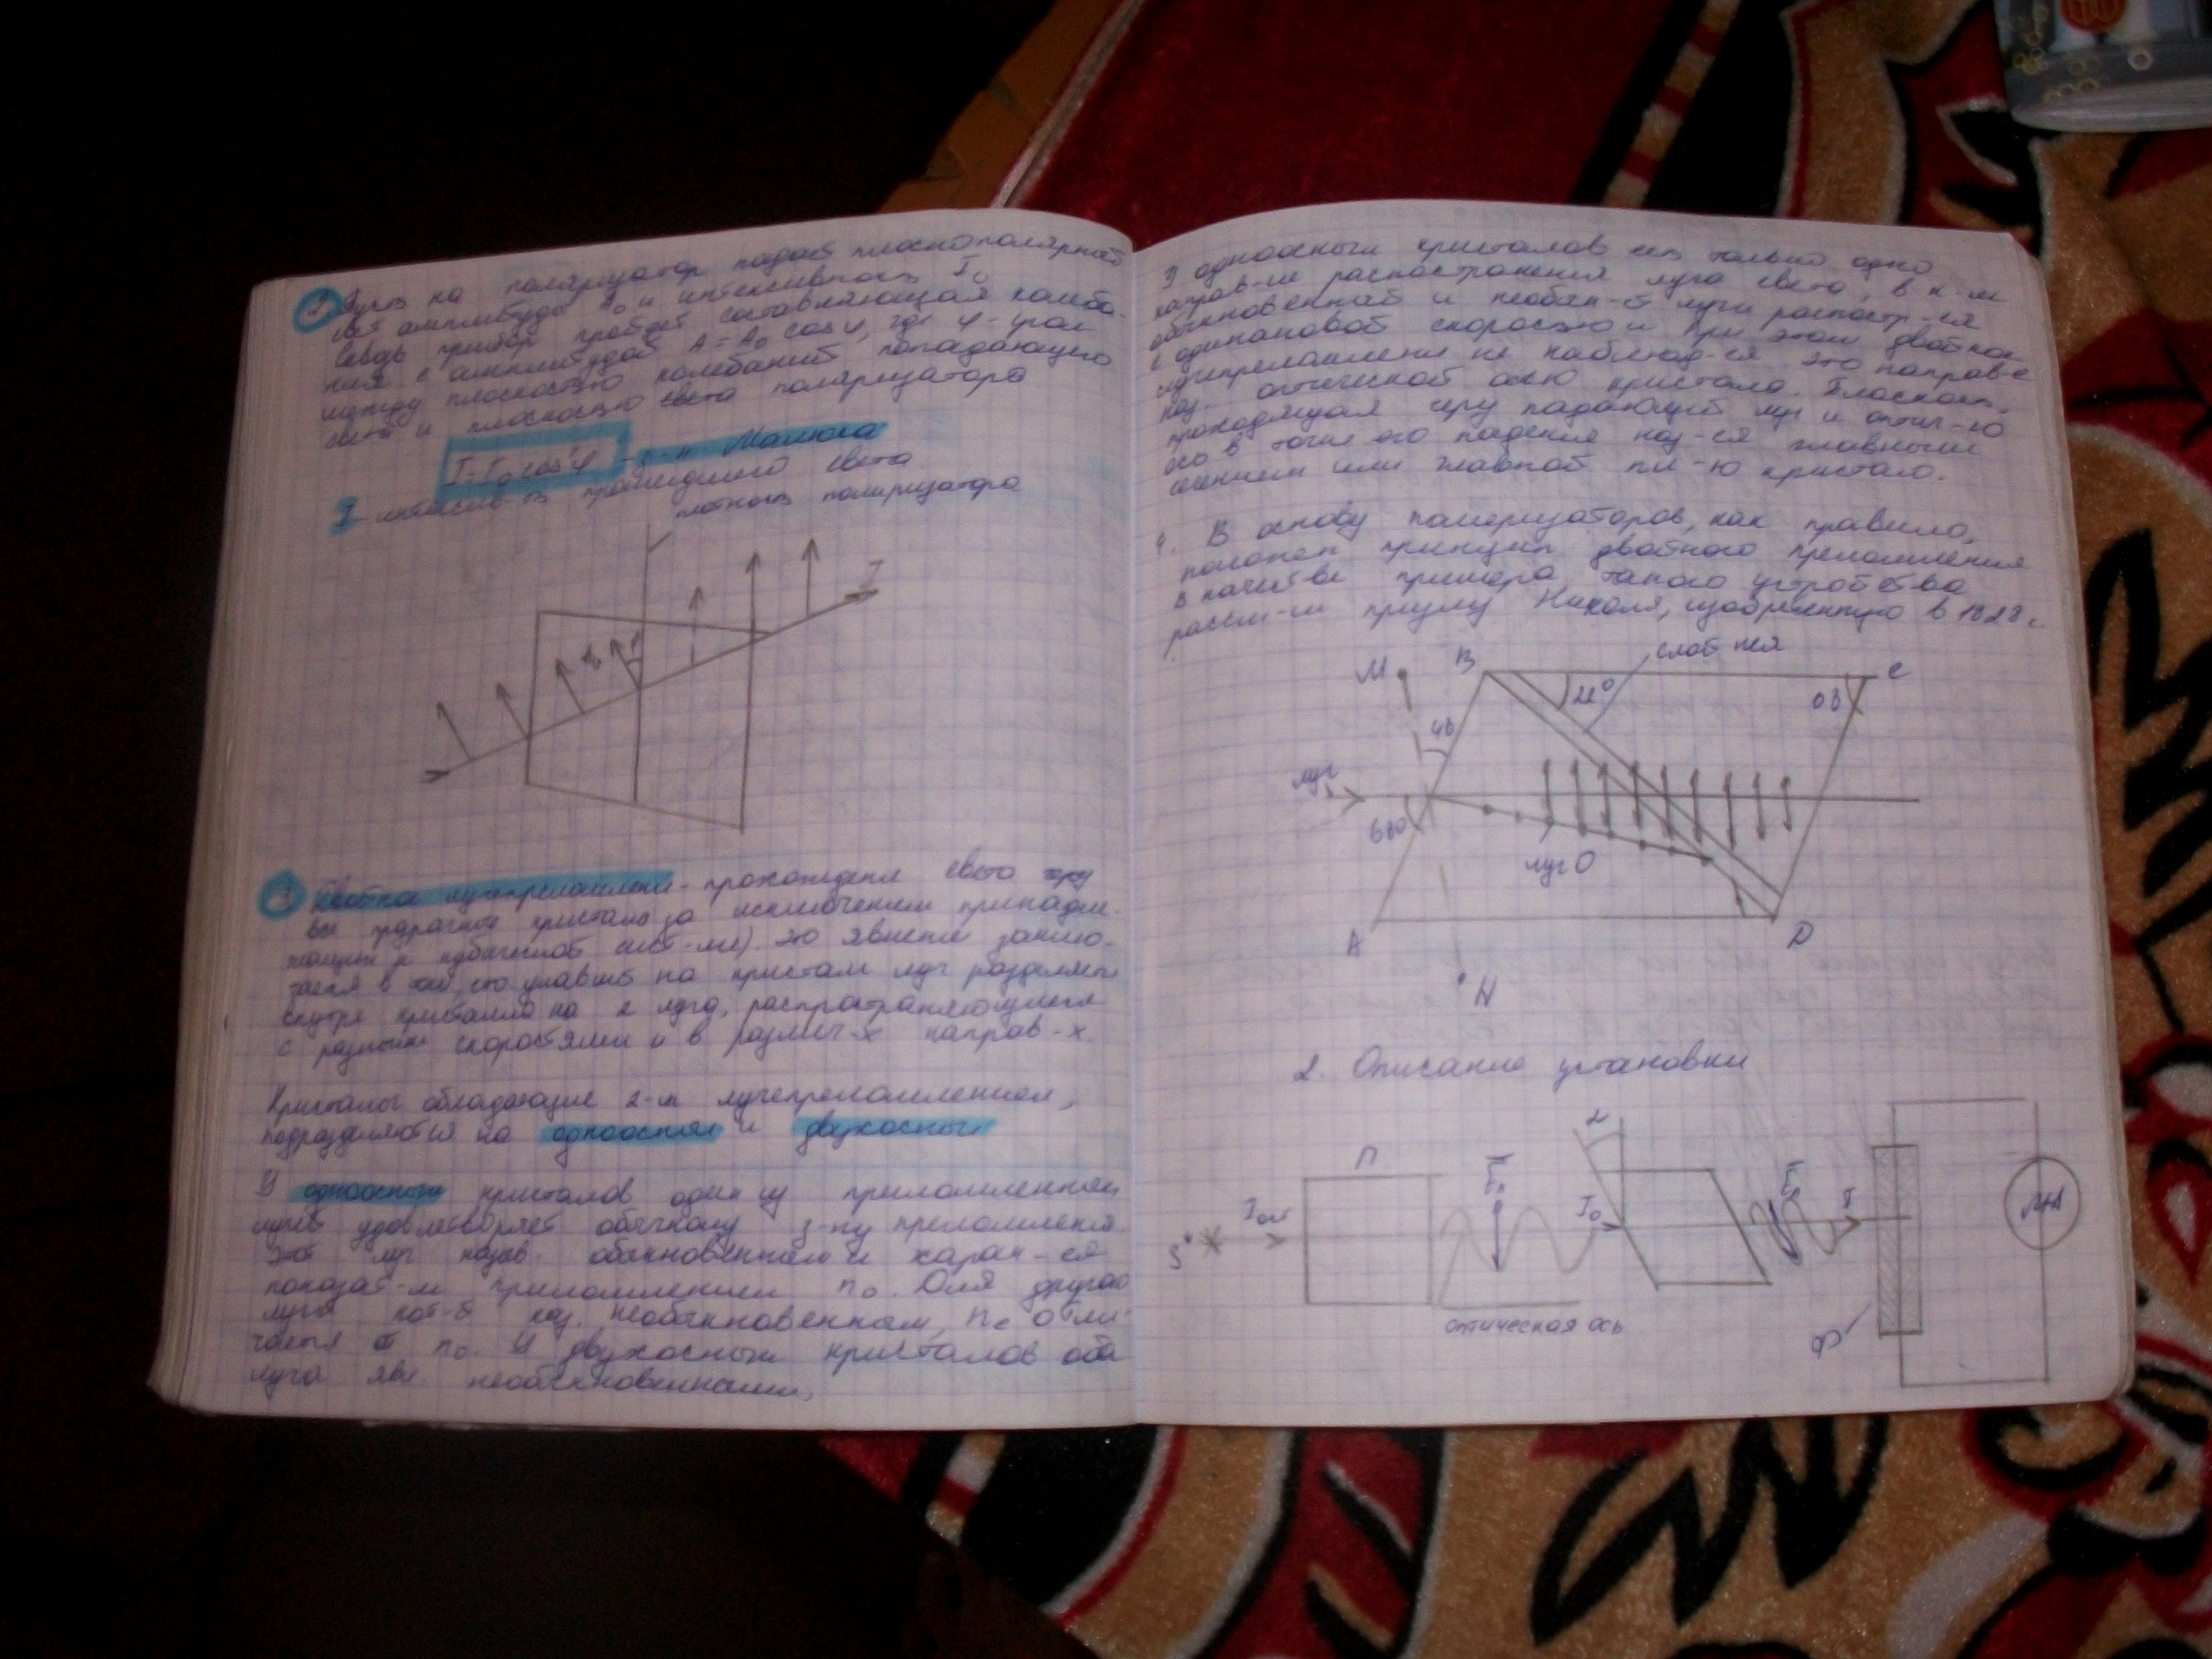 2. Пусть на поляризатор падает плоскополярный
свет амплитуды A₀ и интенсивность I₀
Сквозь прибор пройдет составляющая колеба-
ния с амплитудой A = A₀ cos φ, где φ - угол
между плоскостью колебаний попадающего
света и плоскостью света поляризатора
I=I₀ cos²φ - з-н Малюса
I - интенсив-ть прошедшего света
плотность поляризатора
I
3. Двойное лучепреломление - прохождение света через
все прозрачные кристаллы за исключением принадле-
жащим к кубической сист-ме). Это явление заклю-
чается в том, что упавший на кристалл луч разделяется
внутри кристалла на 2 луча, распространяющиеся
с разными скоростями и в различ-х направ-х.
Кристалы обладающие 2-м лучепреломлением,
подразделяются на одноосные и двухосные
У одноосных кристалов один из преломленных
лучей удовлетворяет обычному з-ну преломления
Этот луч назыв. обыкновенным и харак-ся
показат-м преломления n₀. Для другого
луча кот-й наз. необыкновенном, nₑ отли-
чается от n₀. У двухосных кристалов оба
луча явл. необыкновенными,
У одноосных кристалов есть только одно
направ-ие распространения луча света, в к-м
обыкновенный и необык-й лучи распостр-ся
с одинаковой скоростью и при этом двойное
лучепреломление не наблюд-ся. Это направ-е
наз. оптической осью кристала. Плоскость,
проходящая через падающий луч и оптич-ю
ось в точке его падения наз-ся главным
сечением или главной пл-ю кристал.
4. В основу поляризаторов, как правило,
положен принцип двойного преломления
в качестве примера такого устройства
рассм-м призму Николя, изобретенную в 1828 г.
слой клея
M B 22° C
48
луч
S
68°
луч O
A D
N
2. Описание установки
α
П
S* Iест E₀ I₀ E₁ I МА
оптическая ось
Ф